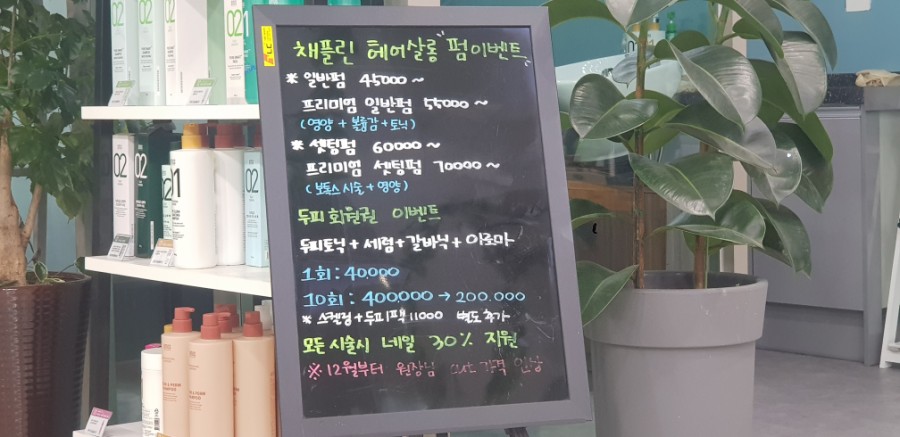 채플린 헤어살롱 "펌이벤트"
* 일반펌 45000 ~
프리미엄 일반펌 55000 ~
(영양 + 볼륨감 + 토닉)
* 셋팅펌 60000 ~
프리미엄 셋팅펌 70000 ~
(보톡스 시술 + 영양)
두피 회원권 이벤트
두피토닉 + 세럼 + 갈바닉 + 아로마
1회 : 40,000
10회 : 400,000 → 200,000
* 스켈링 + 두피팩 11000 별도 추가
모든 시술시 네일 30% 지원
※ 12월부터 원장님 cut 가격 인상
02
1
02
02
1
02